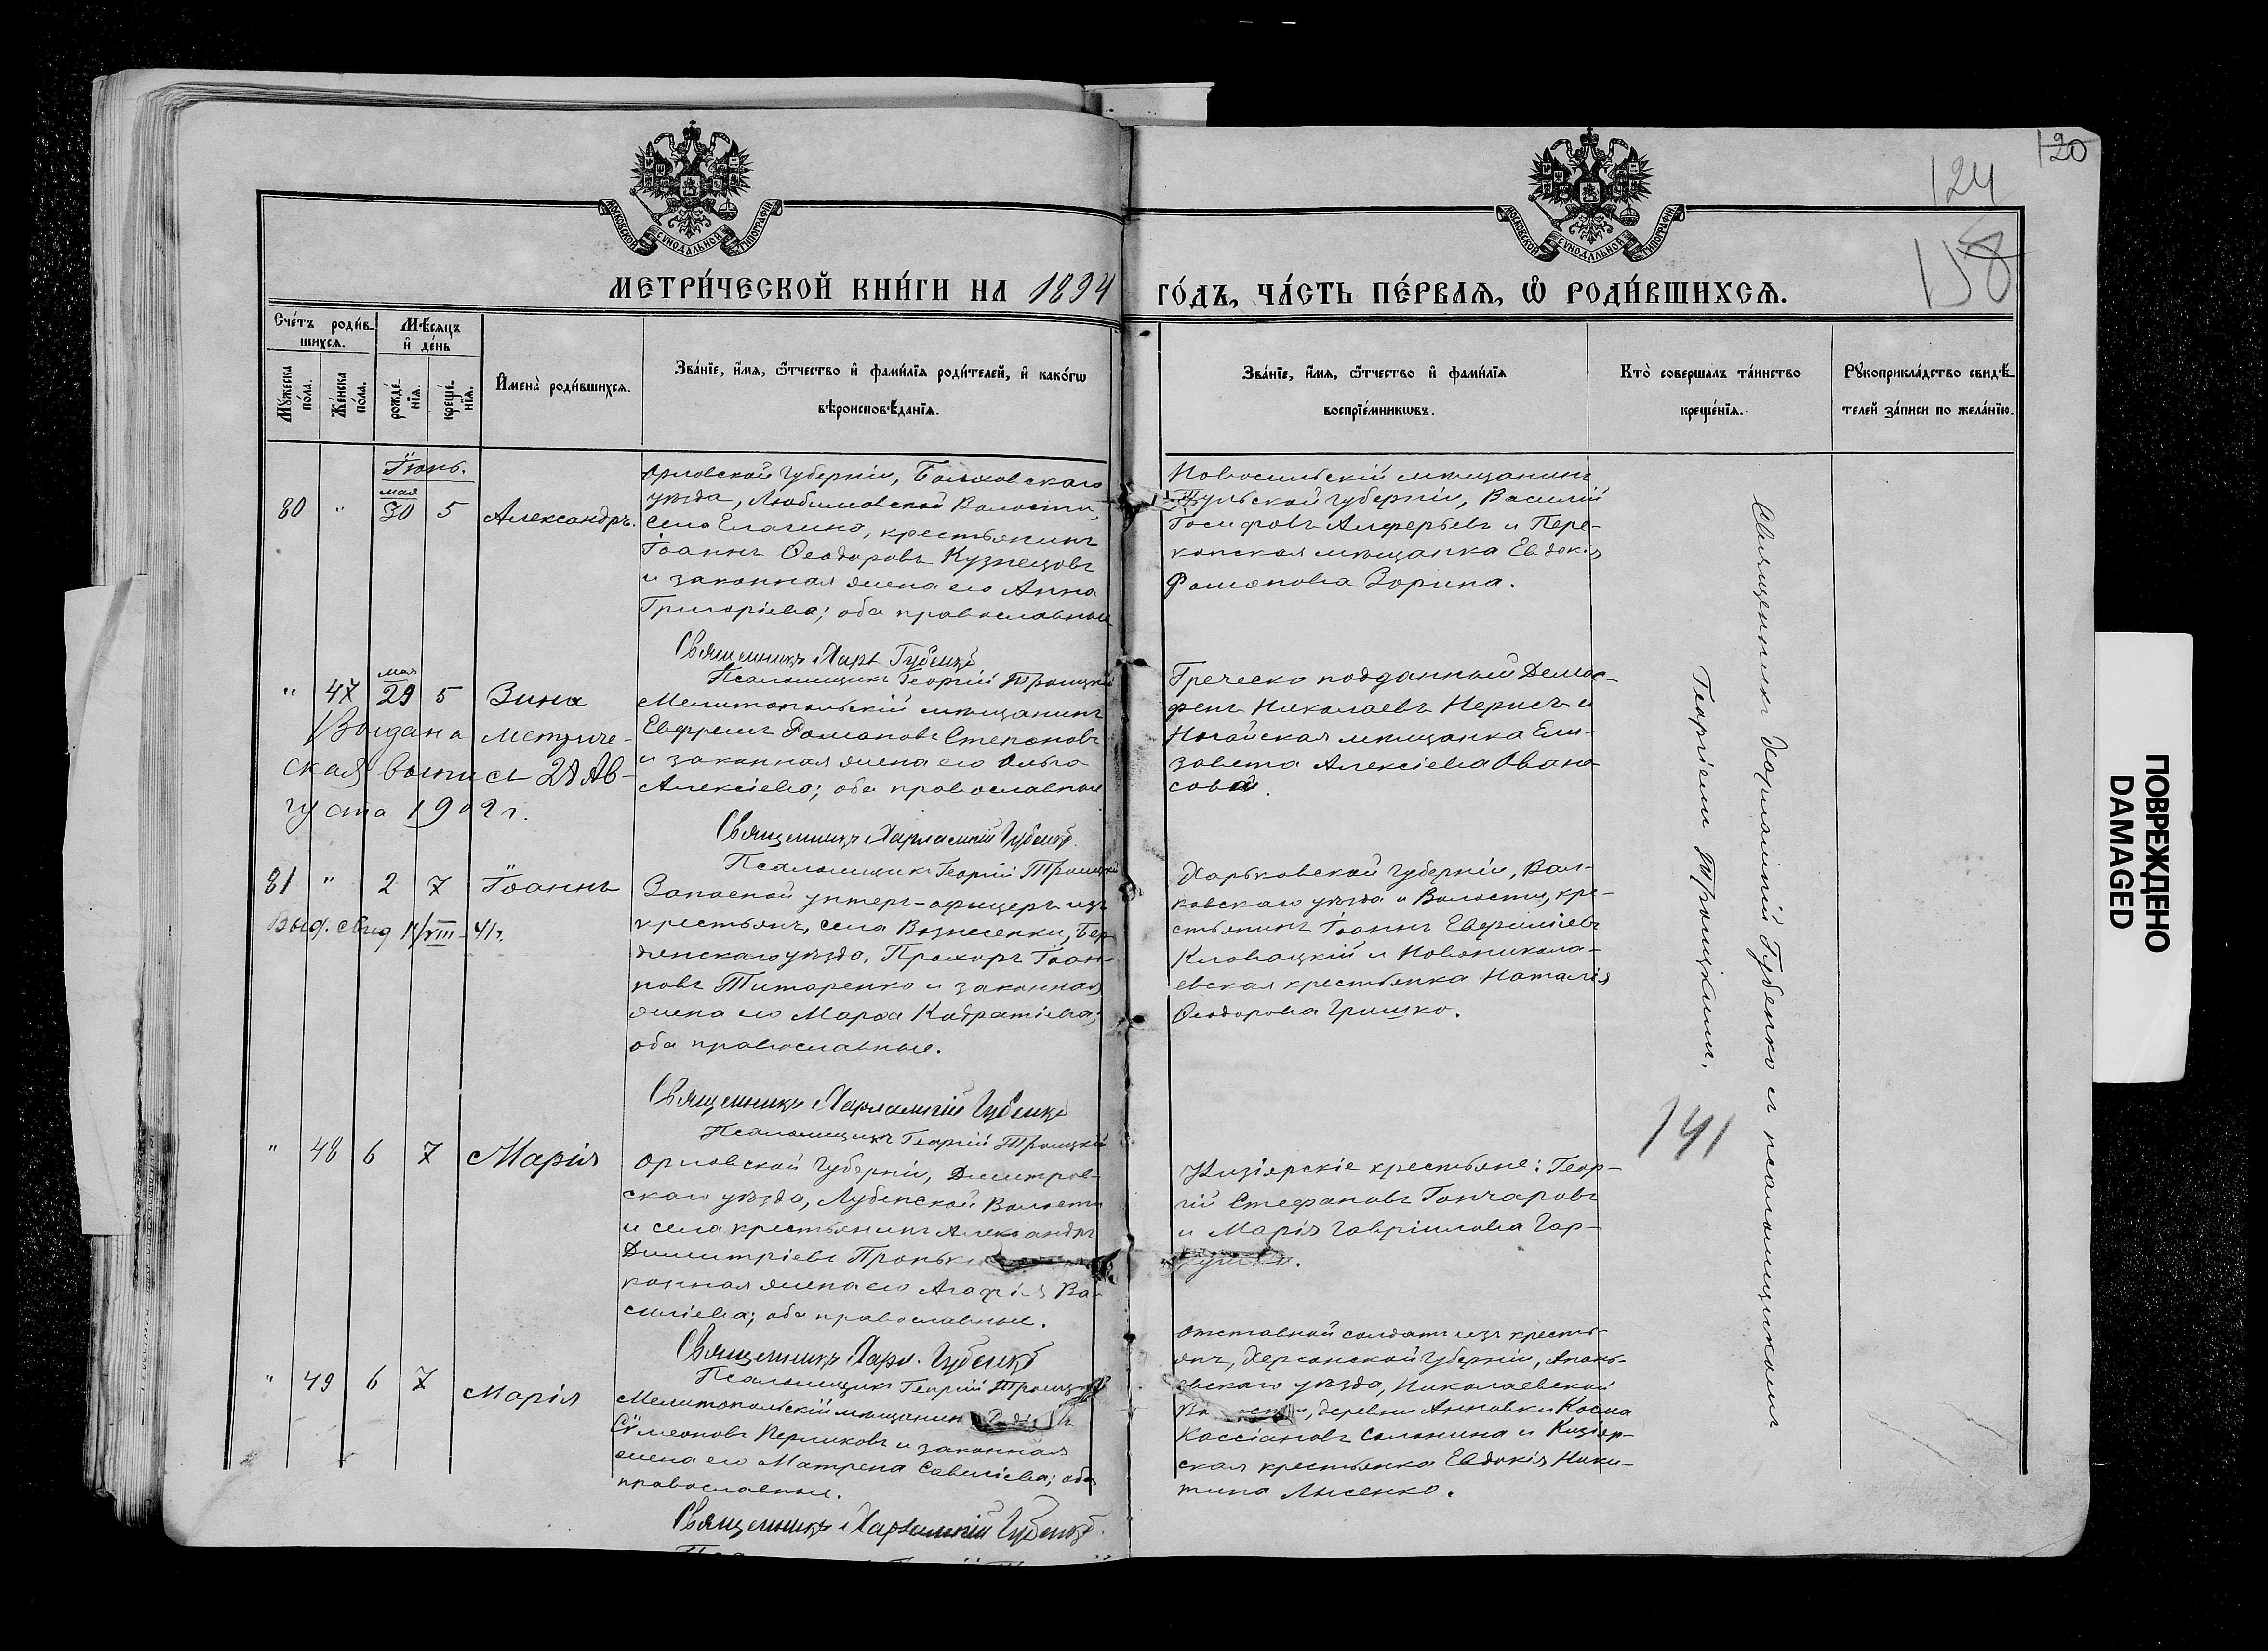 120
124
118
МОСКОВСКОЙ СУНОДАЛЬНОЙ ТИПОГРАФІИ
МОСКОВСКОЙ СУНОДАЛЬНОЙ ТИПОГРАФІИ
МЕТРИ́ЧЕСКОЙ КНИ́ГИ НА 1894
ГО́ДЪ, ЧА́СТЬ ПЕ́РВАѦ, Ѽ РОДИ́ВШИХСѦ.
Сче́тъ роди́в-
шихсѧ.
Мѣ́сѧцъ
и҆ де́нь
Мꙋ́жеска
по́ла.
Же́нска
по́ла.
рожде́-
нїѧ.
креще́-
нїѧ.
И҆мена̀ роди́вшихсѧ.
Зва́нїе, и҆́мѧ, ѻ҆́тчество и҆ фами́лїѧ роди́телей, и҆ како́гѡ
вѣроисповѣ́данїѧ.
Зва́нїе, и҆́мѧ, ѻ҆́тчество и҆ фами́лїѧ
воспрїе́мникѡвъ.
Кто̀ соверша́лъ та́инство
креще́нїѧ.
Рꙋкоприкла́дство свидѣ́-
телей за́писи по жела́нїю.
Іюнь.
80 " мая 30 5 Александръ.
Орловской Губерніи, Болховскаго
уѣзда, Любимовской Волости,
села Елагино, крестьянинъ
Іоаннъ Ѳеодоровъ Кузнецовъ
и законная жена его Анна
Григоріева; оба православные
Священникъ Харл Губенко
Псаломщикъ Георгій Троицкій
Новосильскій мѣщанинъ
Тульской Губерніи, Василій
Іосифовъ Алферьевъ и Пере-
копская мѣщанка Евдокія
Филипова Зорина.
" 47 мая 29 5 Зина
Выдана метриче-
ская выпись 28 Ав-
густа 1909 г.
Мелитопольскій мѣщанинъ
Евфремъ Романовъ Степановъ
и законная жена его Ольга
Алексіева; оба православные
Священникъ Харлампій Губенко
Псаломщикъ Георгій Троицкій
Греческо подданный Демос-
фенъ Николаевъ Нерисъ и
Ногайская мѣщанка Ели-
завета Алексіева Овано-
сова.
81 " 2 7 Іоаннъ
Выд. свид 11/VIII-41г.
Запасной унтеръ-офицеръ изъ
крестьянъ, села Вознесенки, Бер-
дянскаго уѣзда, Прохоръ Іоан-
новъ Титаренко и законная
жена его Марѳа Кодратіева;
оба православные.
Священникъ Харлампій Губенко
Псаломщикъ Георгій Троицкій
Харьковской Губерніи, Вал-
ковскаго уѣзда и Волости, кре-
стьянинъ Іоаннъ Евфиміевъ
Кловацкій и Новоникола-
евская крестьянка Наталія
Ѳеодорова Гришко.
" 48 6 7 Марія
Орловской Губерніи, Дмитров-
скаго уѣзда, Лубенской Волости
и села крестьянинъ Александръ
Димитріевъ Проньк
конная жена его Агафія Ва-
силіева; оба православные.
Священникъ Харл. Губенко
Псаломщикъ Георгій Троицкій
Кизіярскіе крестьяне: Геор-
гій Стефановъ Гончаровъ
и Марія Гавріилова Гар-
кушка.
" 49 6 7 Марія
Мелитопольскій мѣщанинъ
Сѵмеоновъ Перликовъ и законная
жена его Матрена Савеліева; оба
православные.
Священникъ Харлампій Губенко.
Отставной солдатъ изъ кресть-
янъ, Херсонской Губерніи, Анань-
евскаго уѣзда, Николаевской
Волости, деревни Анновки Косма
Кассіановъ Солонина и Кизіяр-
ская крестьянка Евдокія Ники-
тина Лысенко.
Священникъ Харлампій Губенко съ псаломщикомъ
Георгіемъ Троицкимъ.
141
ПОВРЕЖДЕНО
DAMAGED